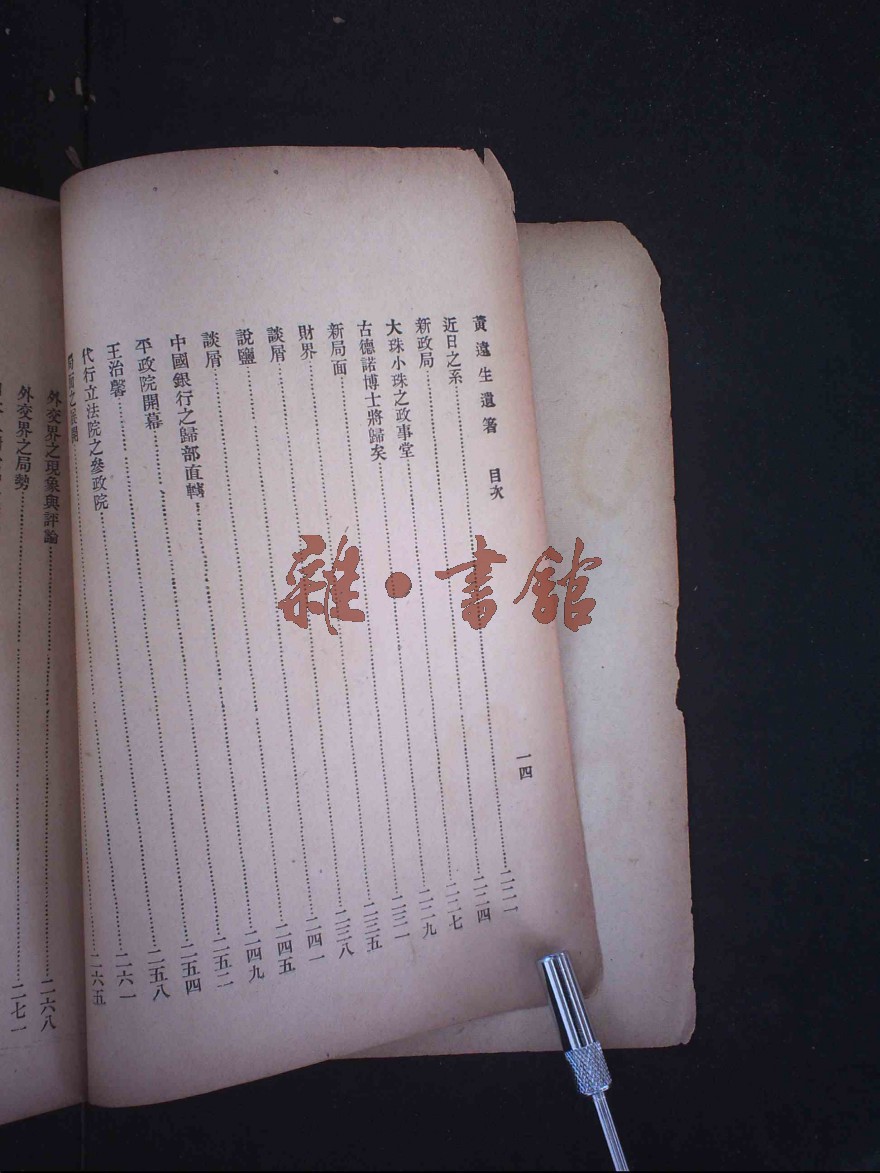 黃遠生遺著 目次 一四
近日之系
新政局
大珠小珠之政事堂
古德諾博士將歸矣
新局面
財界
談屑
說鹽
談屑
中國銀行之歸部直轄
平政院開幕
王治馨
代行立法院之參政院
二二一
二二四
二二七
二二九
二三一
二三五
二三八
二四一
二四五
二四九
二五二
二五四
二五八
二六一
二六五
外交界之現象與評論 二六八
外交界之局勢 二七一
雜·書館